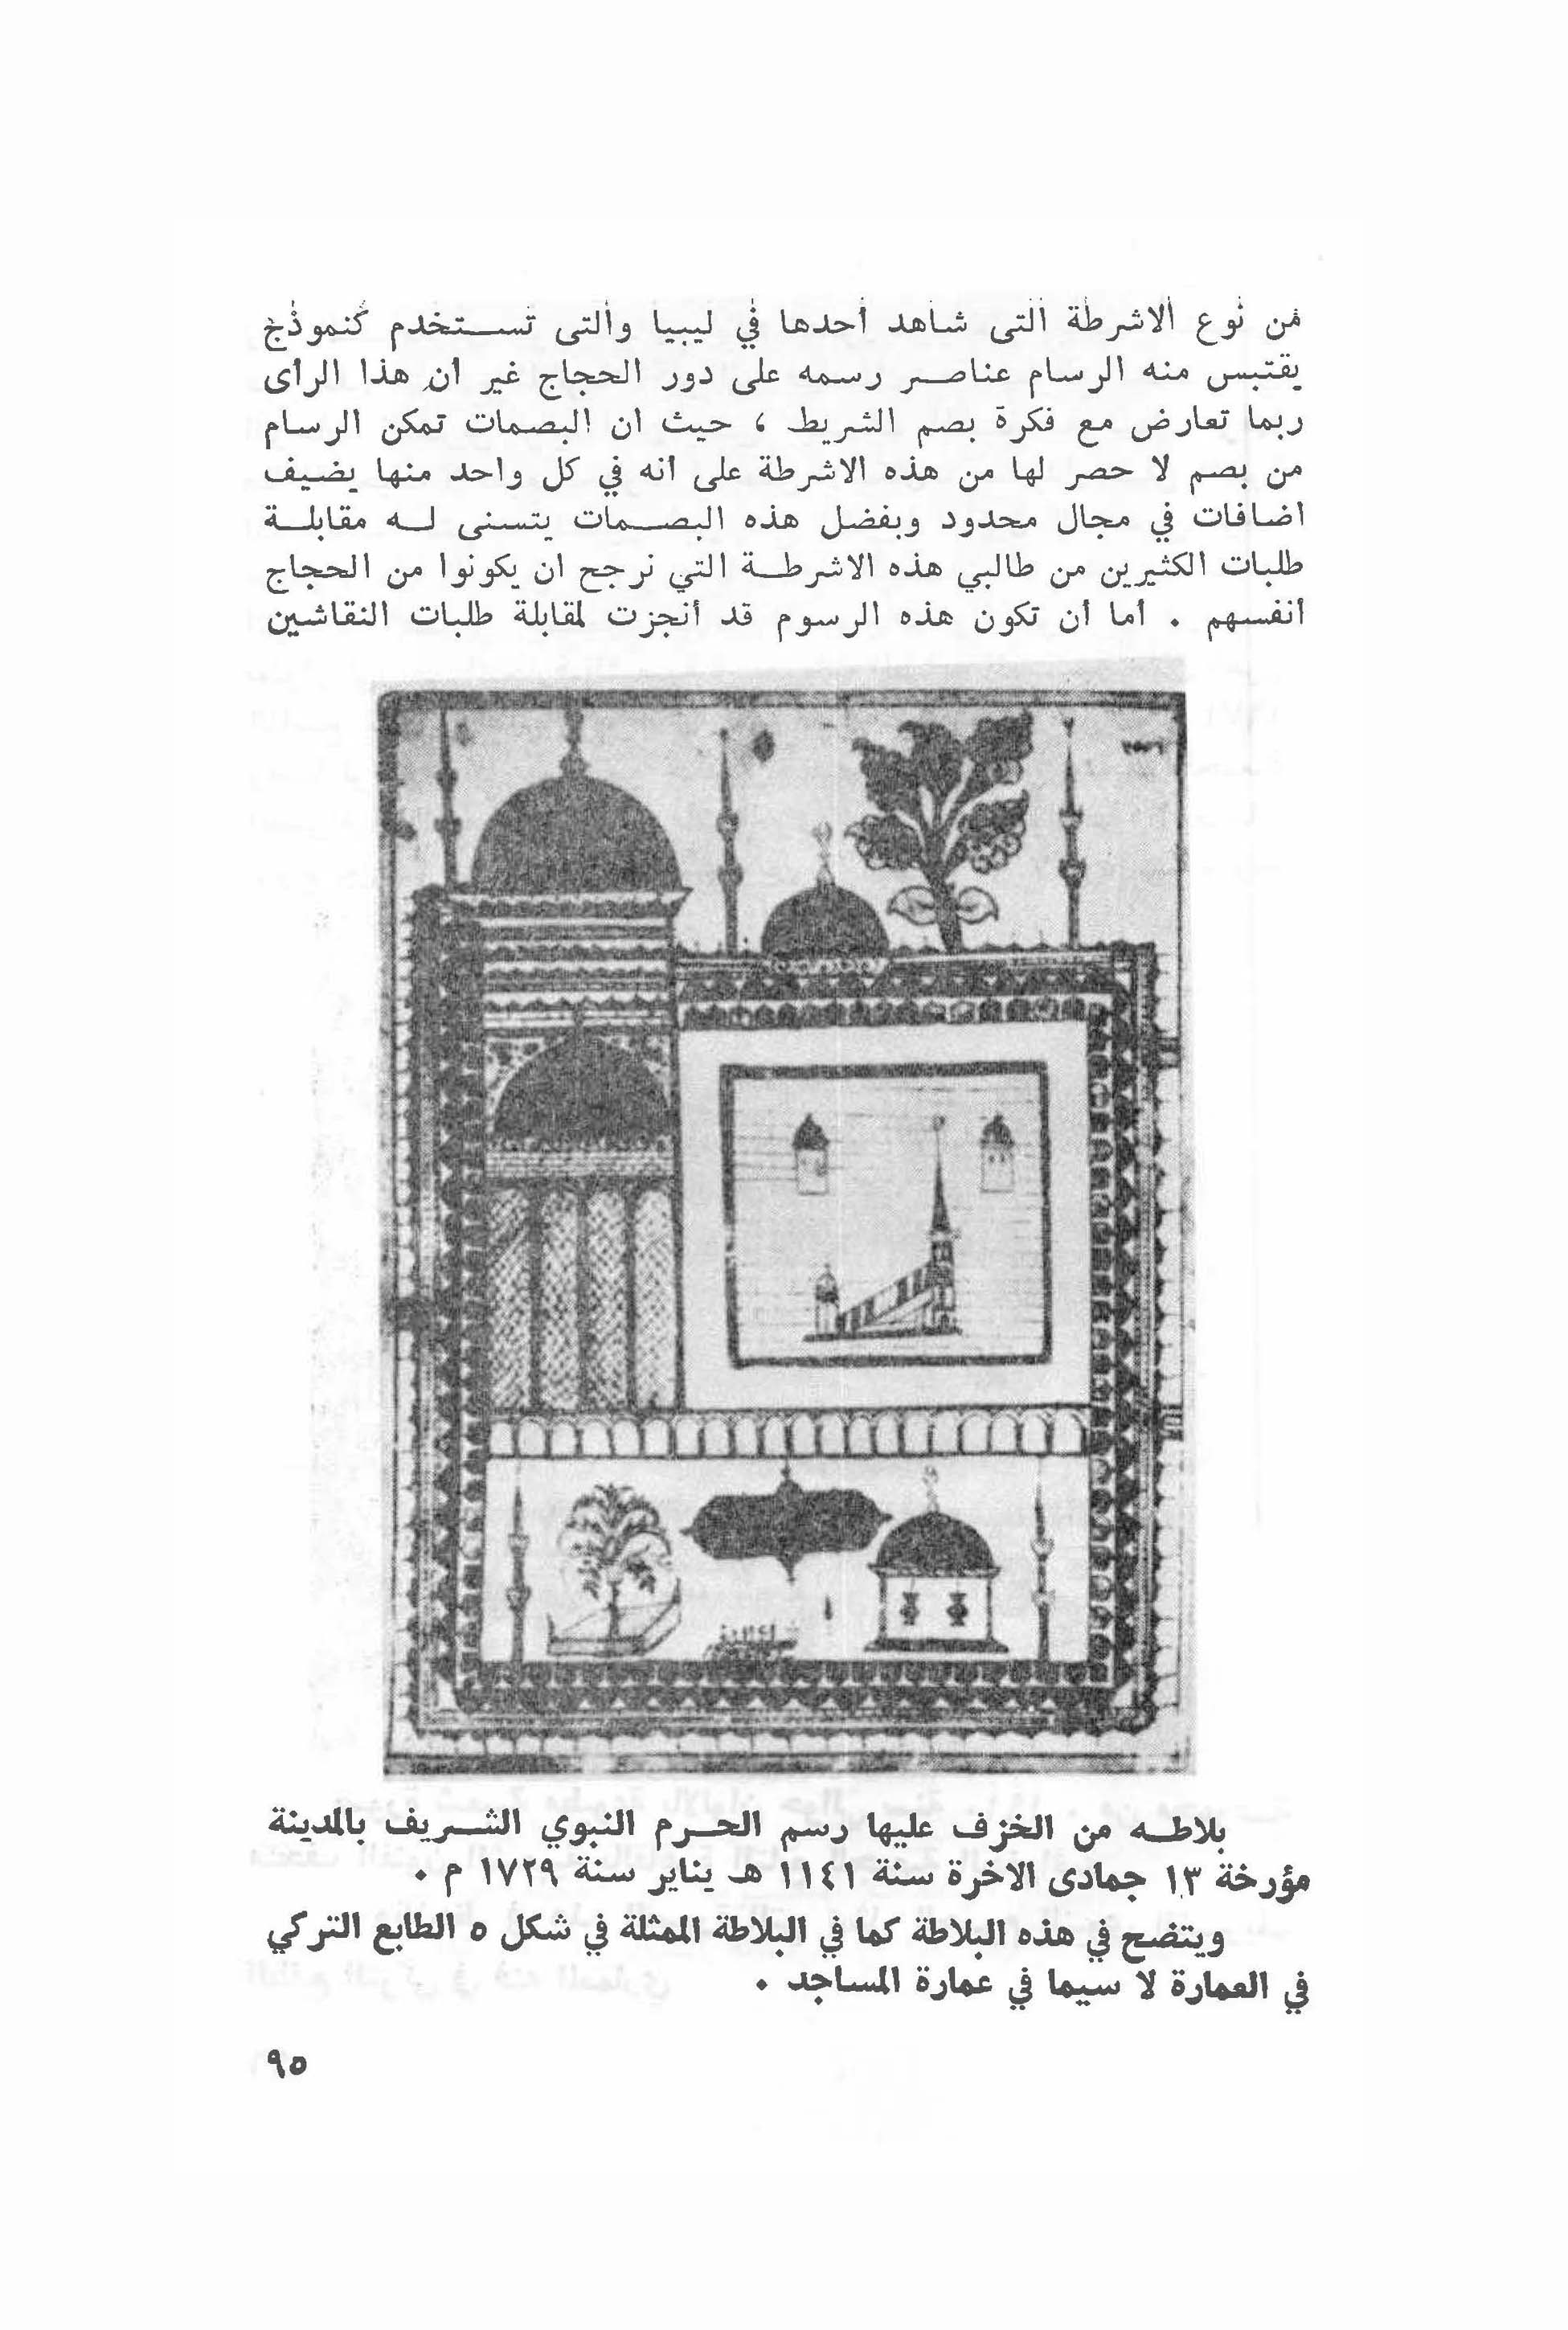 من نوع الاشرطة التى شاهد أحدها في ليبيا والتى تستخدم كنموذج
يقتبس منه الرسام عناصر رسمه على دور الحجاج غير أن هذا الرأى
ربما تعارض مع فكرة بصم الشريط ، حيث ان البصمات تمكن الرسام
من بصم لا حصر لها من هذه الاشرطة على أنه في كل واحد منها يضيف
اضافات في مجال محدود وبفضل هذه البصمات يتسنى له مقابلة
طلبات الكثيرين من طالبي هذه الاشرطة التي نرجح ان يكونوا من الحجاج
أنفسهم . أما أن تكون هذه الرسوم قد أنجزت لمقابلة طلبات النقاشين
بلاطه من الخزف عليها رسم الحرم النبوي الشريف بالمدينة
مؤرخة ١٣ جمادى الاخرة سنة ١١٤١ هـ يناير سنة ١٧٢٩ م .
ويتضح في هذه البلاطة كما في البلاطة الممثلة في شكل ٥ الطابع التركي
في العمارة لا سيما في عمارة المساجد .
٩٥